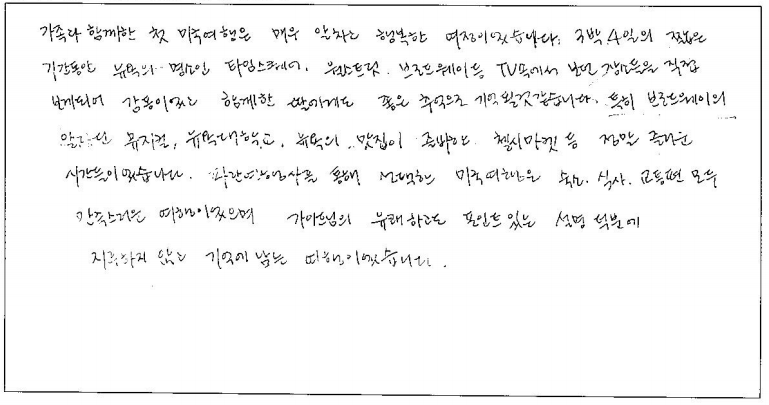 가족과 함께한 첫 미국여행은 매우 알차고 행복한 여정이었습니다. 3박 4일의 짧은
기간동안 뉴욕의 명소인 타임스퀘어, 월스트릿, 브로드웨이등 TV속에서 보던 장소들을 직접
보게되어 감동이었고 함께한 딸에게도 좋은 추억으로 기억될것같습니다. 특히 브로드웨이의
알라딘 뮤지컬, 뉴욕대학교, 뉴욕의 맛집이 즐비한 첼시마켓 등 정말 즐거운
시간들이었습니다. 파란여행사를 통해 선택한 미국여행은 숙소, 식사, 교통편 모두
만족스러운 여행이었으며 가이드님의 유쾌하고도 포인트 있는 설명 덕분에
지루하지 않고 기억에 남는 여행이었습니다.